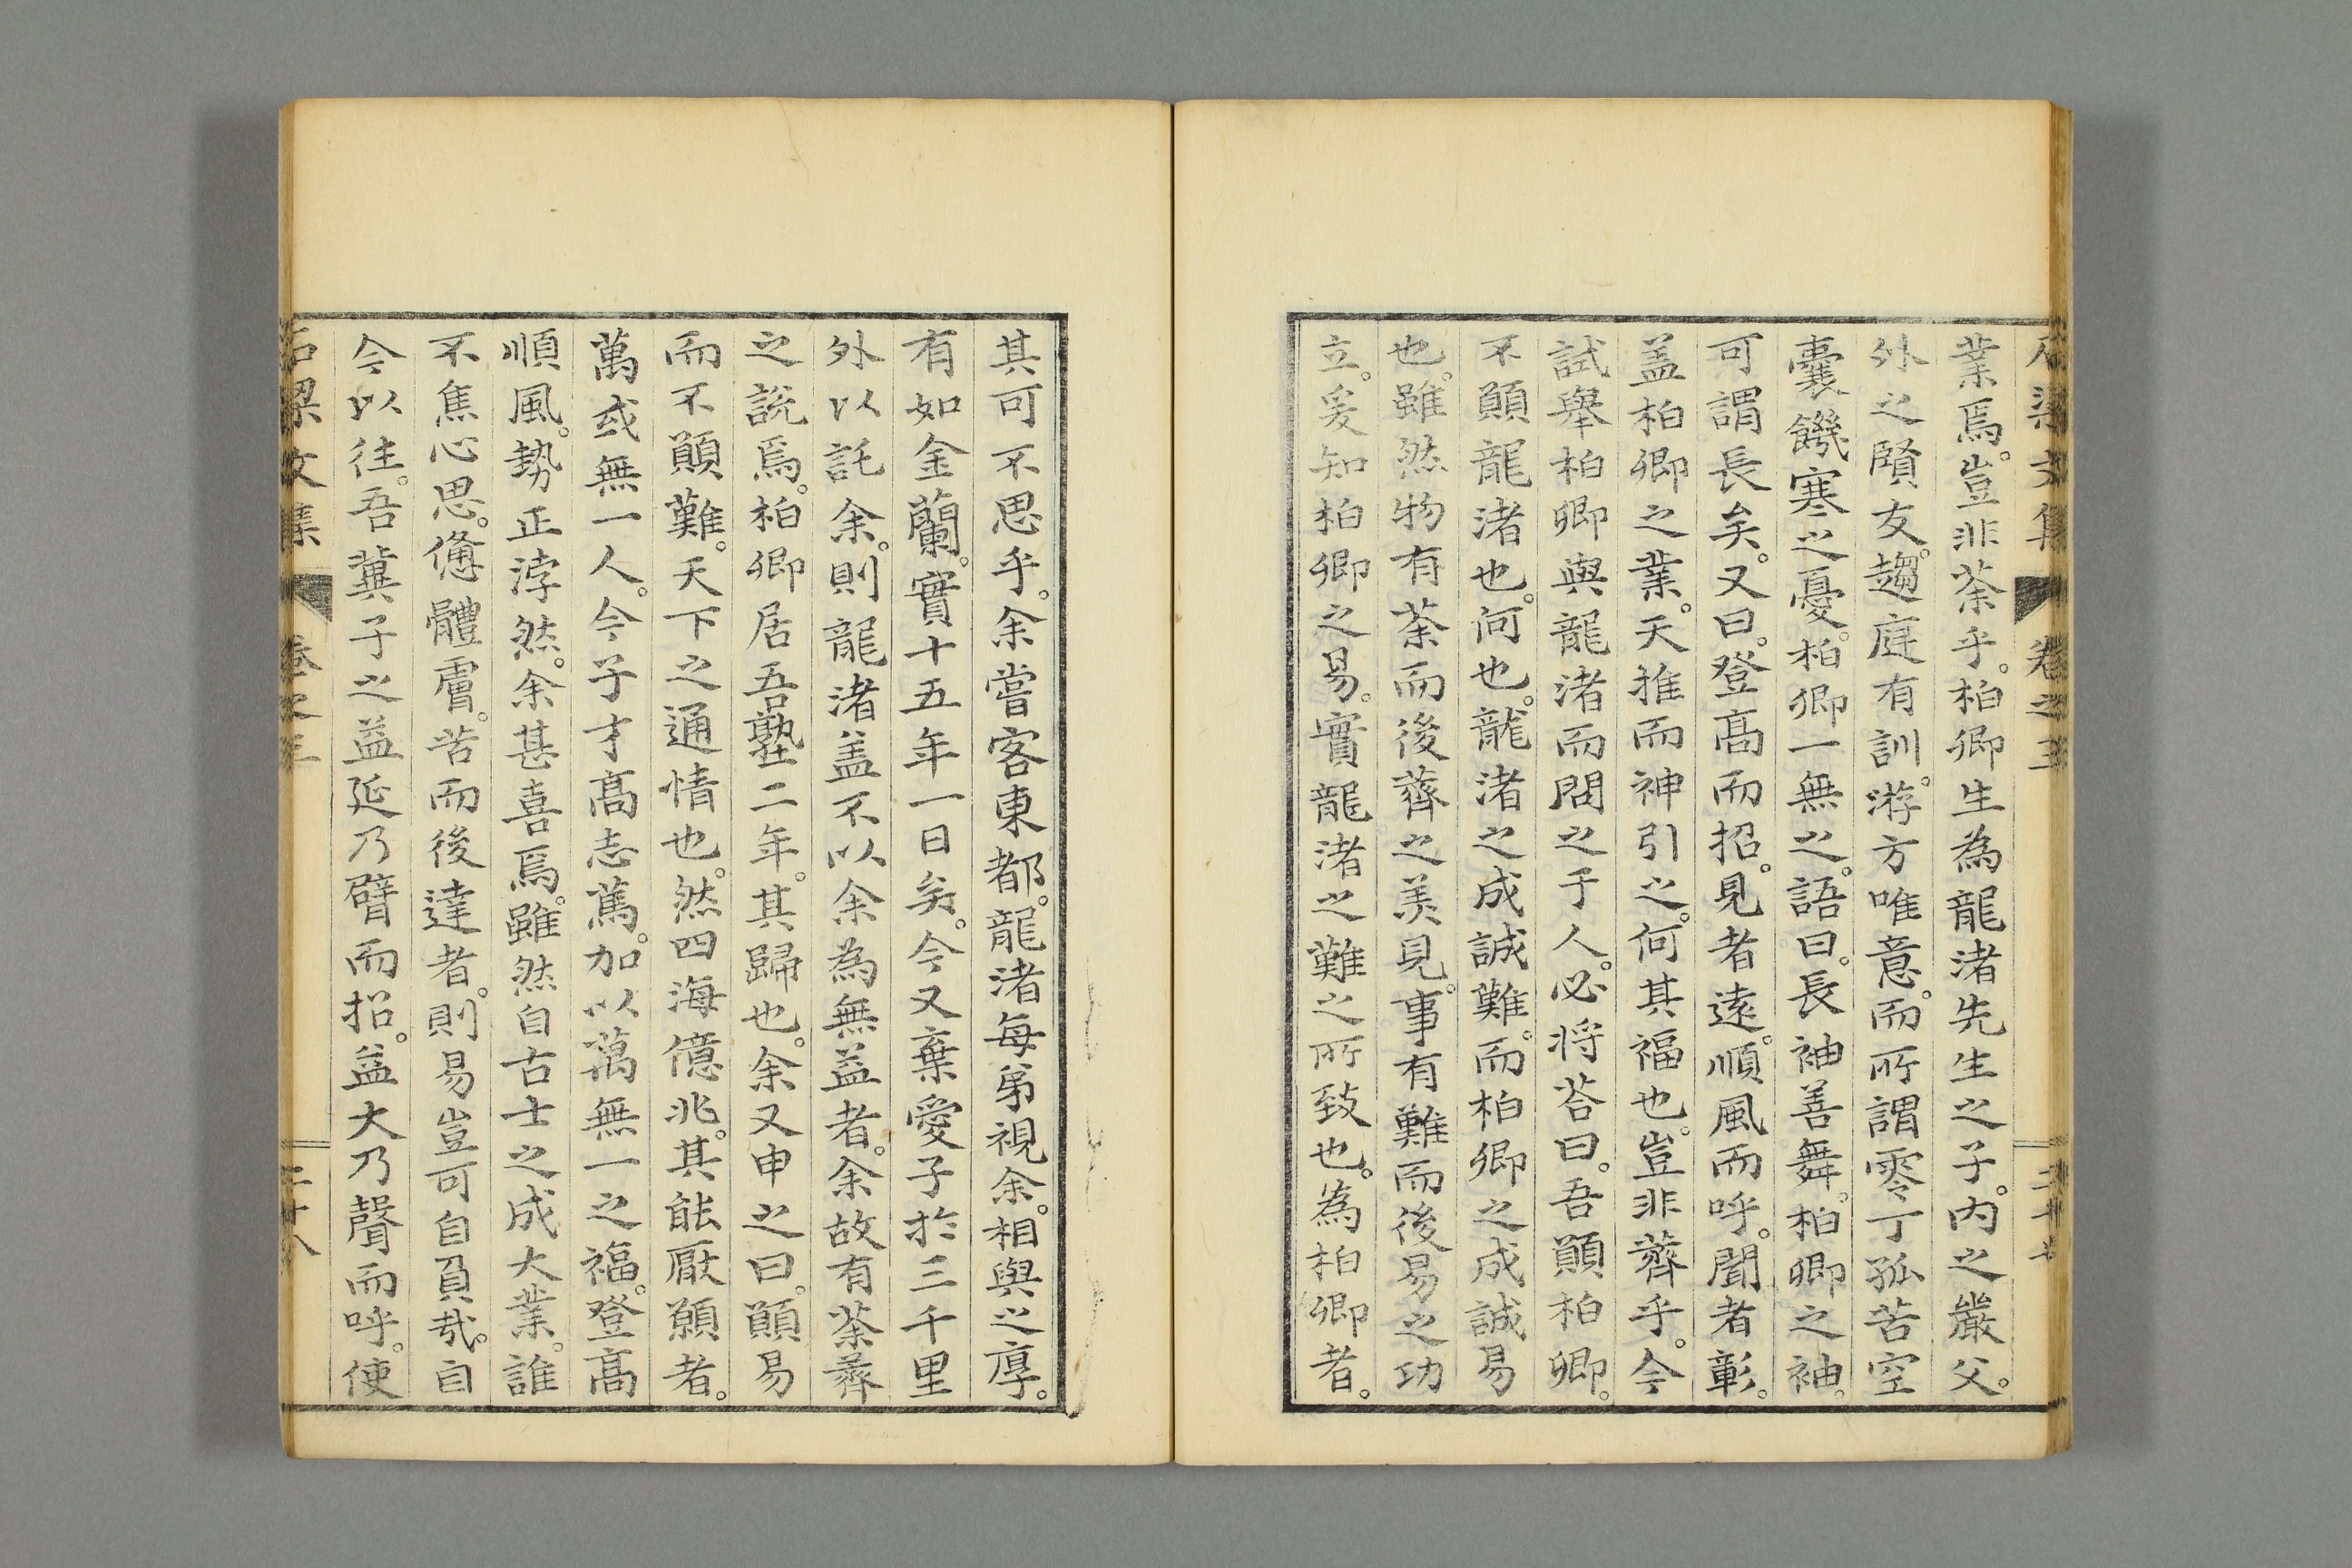 石梁文集 卷之三 二十七
業焉。豈非荼乎。柏卿生為龍渚先生之子。内之嚴父。
外之賢友。趨庭有訓。游方唯意。而所謂零丁孤苦空
囊饑寒之憂。柏卿一無之。語曰。長袖善舞。柏卿之袖。
可謂長矣。又曰。登高而招。見者遠。順風而呼。聞者彰。
盖柏卿之業。天推而神引之。何其福也。豈非薺乎。今
試舉柏卿與龍渚而問之于人。必将荅曰。吾願柏卿。
不願龍渚也。何也。龍渚之成誠難。而柏卿之成誠易
也。雖然物有荼而後薺之美見。事有難而後易之功
立。爰知柏卿之易。實龍渚之難之所致也。為柏卿者。
其可不思乎。余嘗客東都。龍渚每弟視余。相與之厚。
有如金蘭。實十五年一日矣。今又棄愛子於三千里
外以託余。則龍渚盖不以余為無益者。余故有荼薺
之說焉。柏卿居吾塾二年。其歸也。余又申之曰。願易
而不願難。天下之通情也。然四海億兆。其能厭願者。
萬或無一人。今子才高志篤。加以萬無一之福。登高
順風。勢正浡然。余甚喜焉。雖然自古士之成大業。誰
不焦心思。憊體膚。苦而後達者。則易豈可自負哉。自
今以往。吾冀子之益延乃臂而招。益大乃聲而呼。使
石梁文集 卷之三 二十八